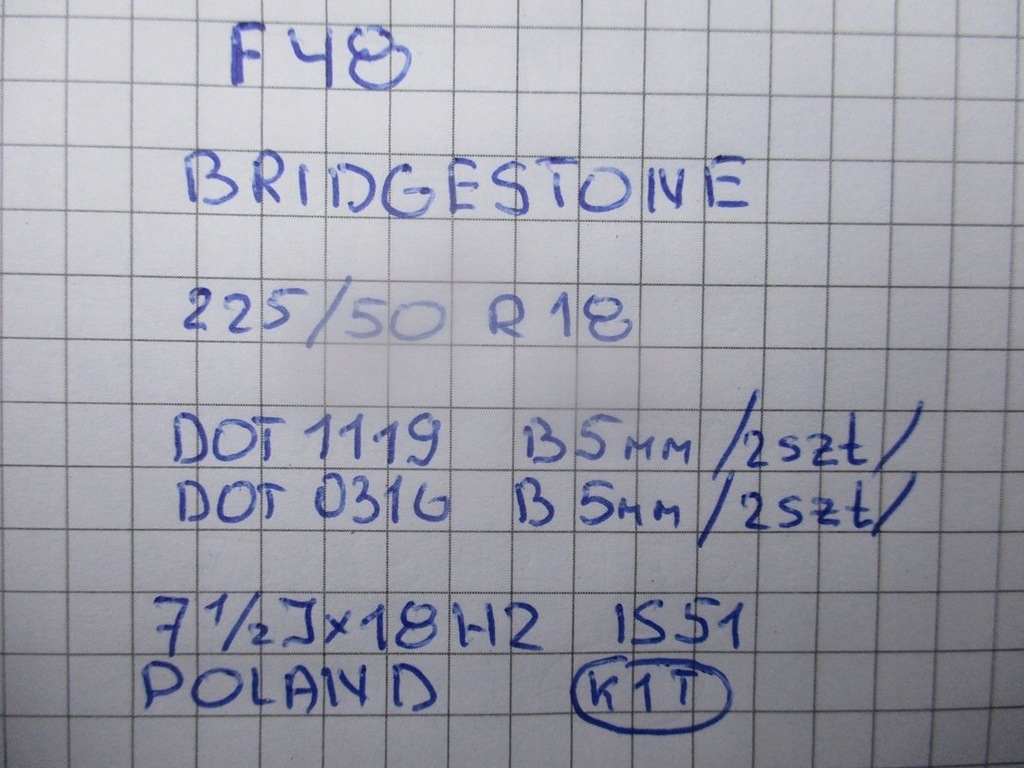 F48
BRIDGESTONE
225/50 R18
DOT 1119 B 5mm /2szt/
DOT 0316 B 5mm /2szt/
7 1/2 J x 18 H2 IS51
POLAND K1T